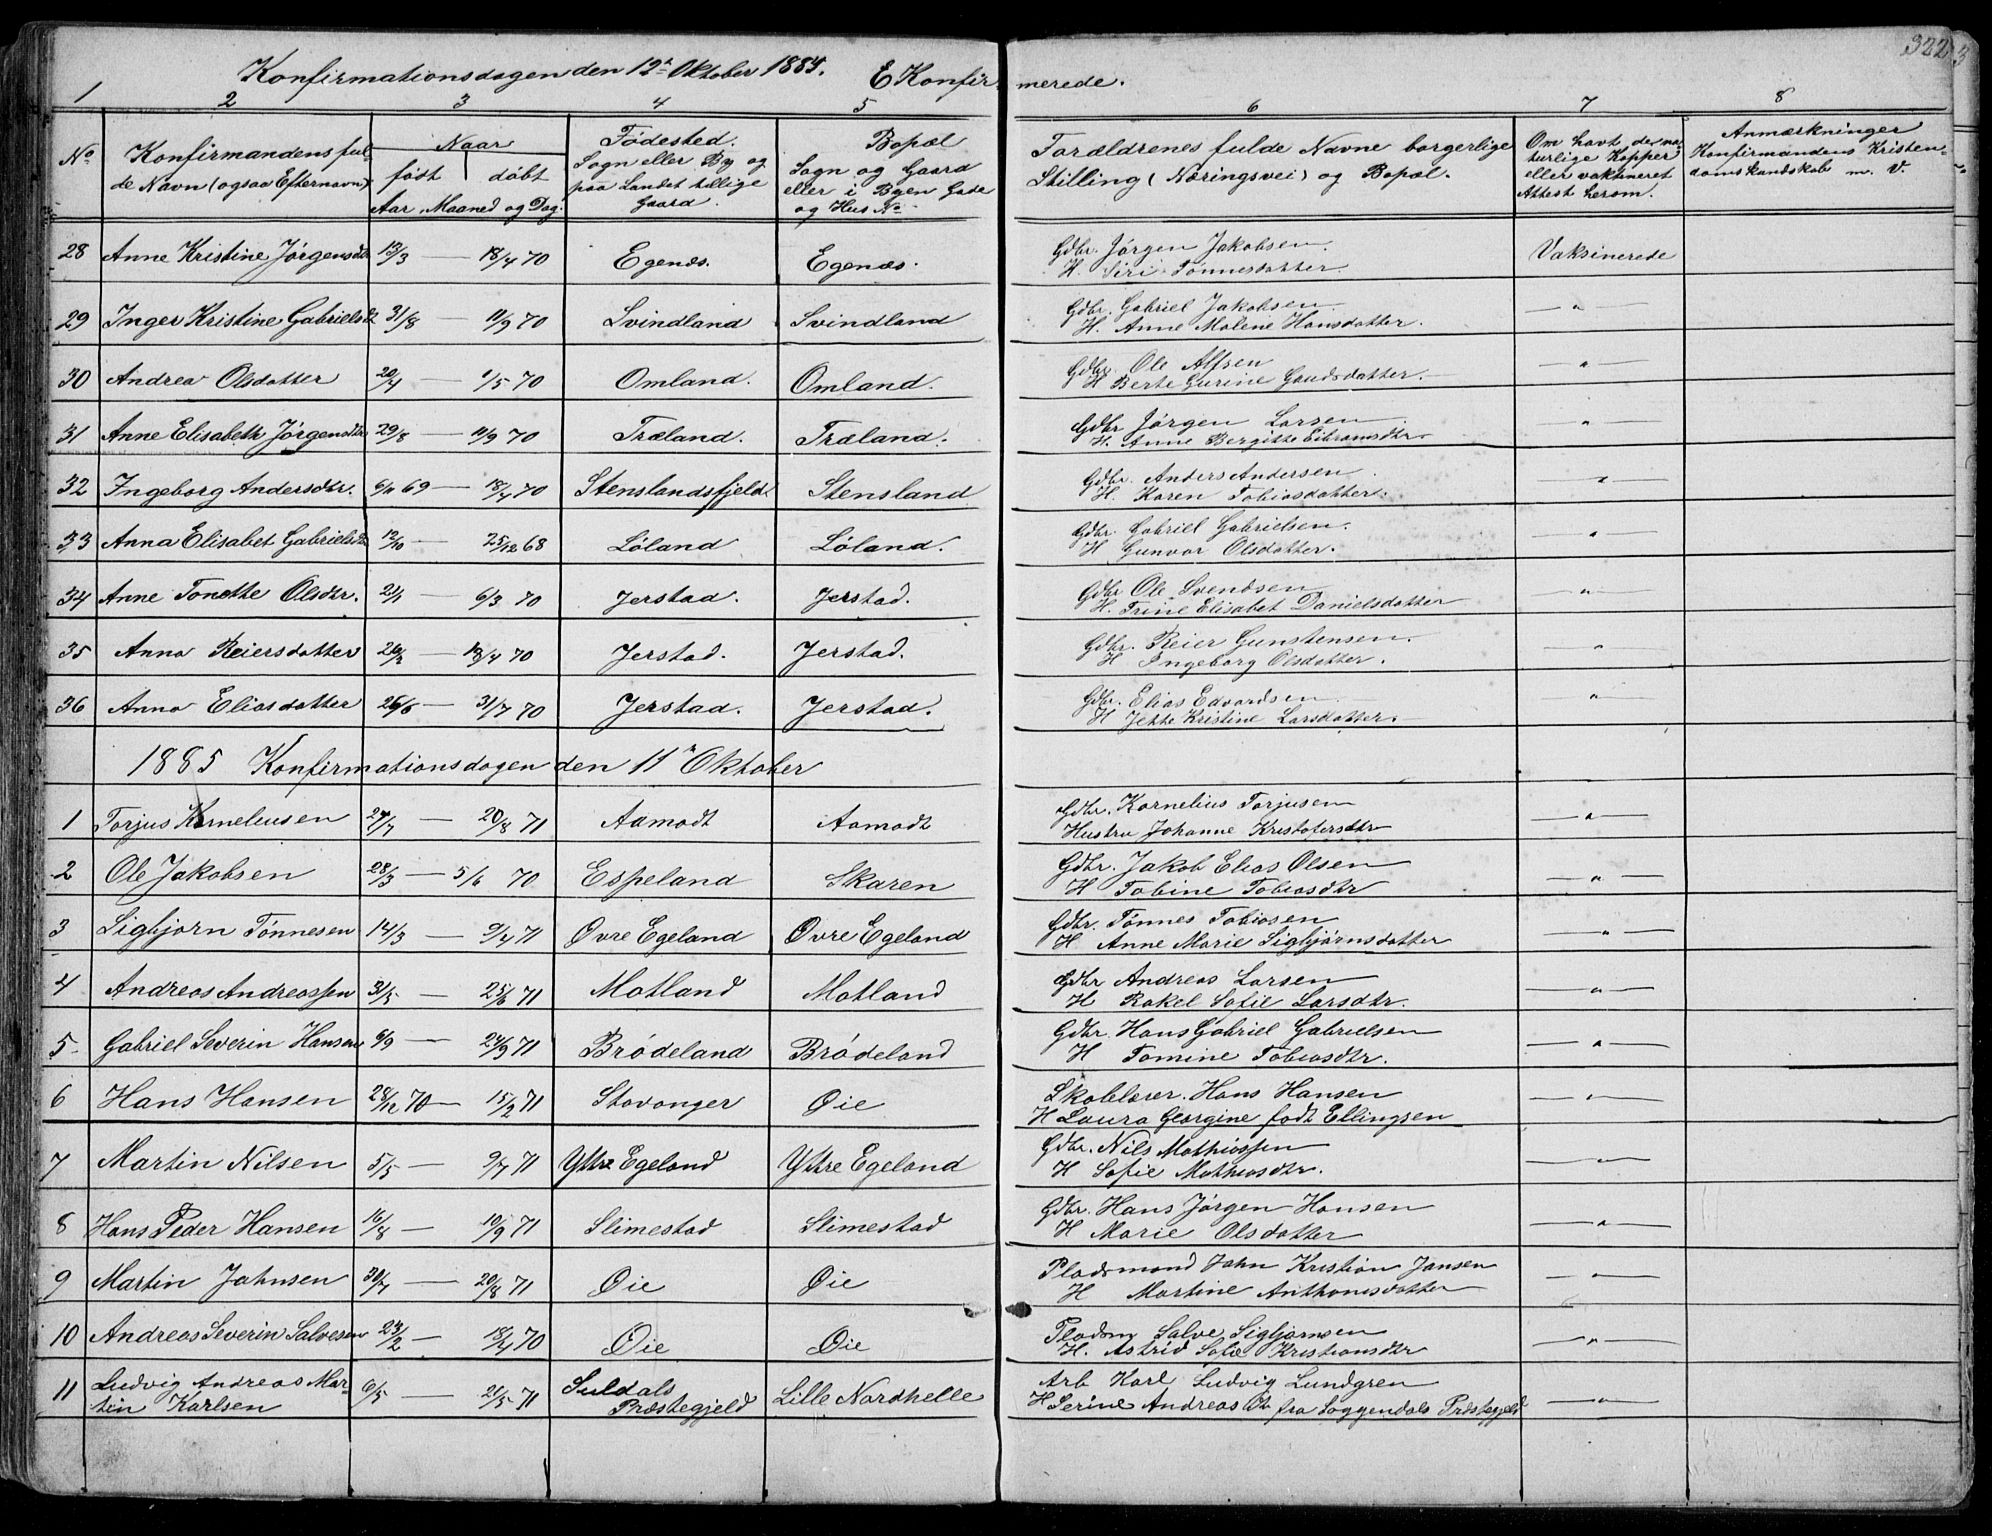 322
Konfirmationsdagen den 12te Oktober 1884. E Konfirmerede.
1 2 3 4 5 6 7 8
No
Konfirmandens fulde Navn (ogsaa Efternavn)
Naar
født | døbt
Aar Maaned og Dag.
Fødested.
Sogn eller By og
paa Landet tillige
Gaard.
Bopæl
Sogn og Gaard
eller i Byen Gade
og Hus No
Forældrenes fulde Navne borgerlige
Stilling (Næringsvei) og Bopæl.
Om havt de naturlige Kopper
eller vaksineret
Attest herom.
Anmærkninger
Konfirmandens Kristendomskundskab m. V.
28 Anne Kristine Jørgensdtr 13/3 — 18/4 70 Egenæs. Egenæs. Gdbr. Jørgen Jakobsen. Vaksinerede
H. Siri Tønnesdatter.
29 Inger Kristine Gabrielsdtr 31/8 11/9 70 Svindland Svindland Gdbr. Gabriel Jakobsen — " —
H. Anne Malene Hansdatter.
30 Andrea Olsdatter 20/4 — 1/5 70 Omland. Omland. Gdbr. Ole Alfsen — " —
H Berte Gurine Gaudsdatter.
31 Anne Elisabeth Jørgensdtr 29/8 — 11/9 70 Træland. Træland. Gdbr Jørgen Larsen — " —
H. Anne Bergitte Eitramsdtr
32 Ingeborg Andersdtr. 6/11 69 — 18/4 70 Stenslandsfjeld. Stensland Gdbr. Anders Andersen — " —
H. Karen Tobiasdatter.
33 Anna Elisabet Gabrielsdtr 12/10 — 25/12 68 Løland Løland. Gdbr. Gabriel Gabrielsen. — " —
H Gunvor Olsdatter.
34 Anne Tonette Olsdtr. 21/1 — 6/3 70 Jerstad. Jerstad. Gdbr Ole Svendsen — " —
H. Trine Elisabet Danielsdatter
35 Anna Reiersdatter 26/2 — 18/4 70 Jerstad. Jerstad. Gdbr. Reier Gunstensen. — " —
H Ingeborg Olsdatter.
36 Anna Eliasdatter 26/6 — 31/7 70 Jerstad. Jerstad. Gdbr. Elias Edvardsen "
H Jette Kristine Larsdatter.
1885 Konfirmationsdagen den 11te Oktober
1 Torjus Kornelius­en 24/7 — 20/8 71 Aamodt Aamodt Gdbr. Kornelius Torjusen — " —
Hustru Johanne Kristofersdtr
2 Ole Jakobsen 28/3 — 5/6 70 Espeland Skaren Gdbr. Jakob Elias Olsen — " —
H Tobine Tobiasdtr
3 Sigbjørn Tønnesen 14/3 — 9/4 71 Øvre Egeland Øvre Egeland Gdbr. Tønnes Tobiasen — " —
H Anne Marie Sigbjørnsdatter
4 Andreas Andreassen 31/5 — 25/6 71 Motland Motland Gdbr Andreas Larsen — " —
H Rakel Sofie Larsdtr.
5. Gabriel Severin Hansen 6/9 — 24/9 71 Brødeland Brødeland Gdbr. Hans Gabriel Gabrielsen — " —
H Tomine Tobiasdtr.
6 Hans Hansen 28/12 70 — 15/2 71 Stavanger Øie Skolelærer. Hans Hansen — " —
H Laura Georgine født Ellingsen
7 Martin Nilsen 5/5 — 9/7 71 Yttre Egeland Yttre Egeland Gdbr. Nils Mathiassen — " —
H Sofie Mathiasdtr.
8 Hans Peder Hansen 16/8 — 10/9 71 Slimestad Slimestad Gdbr. Hans Jørgen Hansen — " —
H Marie Olsdatter
9 Martin Jahnsen 30/7 — 20/8 71 Øie Øie Pladsmand Jahn Kristian Jansen — " —
H Martine Anthonisdatter
10 Andreas Severin Salvesen 24/2 — 18/4 70 Øie Øie Pladsm Salve Sigbjørnsen — " —
H. Astrid Sofie Kristiansdtr
11 Ludvig Andreas Martin Karlsen 6/5 — 21/5 71 Suldals Præstegjeld Lille Nordhelle Arb Karl Ludvig Lundgren — " —
H Serine Andreasdtr fra Soggendals Præstegjeld